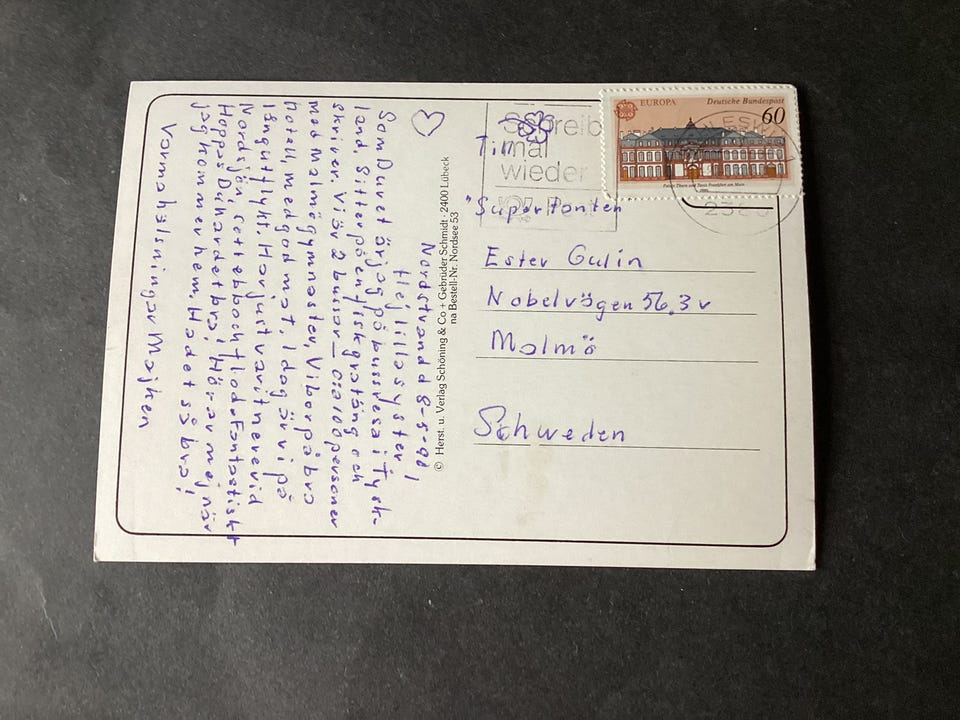 Nordstrand d 8-5-90!
Hej lilla syster!
Som Du vet är jag på bussresa i Tysk-
land. Sitter på en och
skriver. Vi är 2 bussar – c:a 100 personer
med Malmögymnaster. Vi bor på bra
hotell, med god mat. I dag är vi på
långutflykt. Har just varit nere vid
Nordsjön, sett ebb och flod. Fantastiskt
Hoppas Du har det bra! Hör av mej när
jag kommer hem. Ha det så bra!
Varma hälsningar Majken
© Herst. u. Verlag Schöning & Co + Gebrüder Schmidt · 2400 Lübeck
na Bestell-Nr. Nordsee 53
Schreib
mal
wieder
Post
EUROPA Deutsche Bundespost
60
Palais Thurn und Taxis Frankfurt am Main
Till
"Supertanten
Ester Gulin
Nobelvägen 56, 3 v
Malmö
Schweden